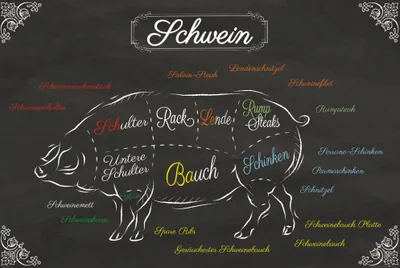 Schwein
Lendenschnitzel
Schweinefilet
Rumpsteak
Schulter
Rack
Lende
Rump
Steaks
Untere
Schulter
Bauch
Schinken
Serrano-Schinken
Parmaschinken
Schnitzel
Schweinemett
Spare Ribs
Geräucherter Schweinebauch
Schweinebauch Platte
Schweinebauch